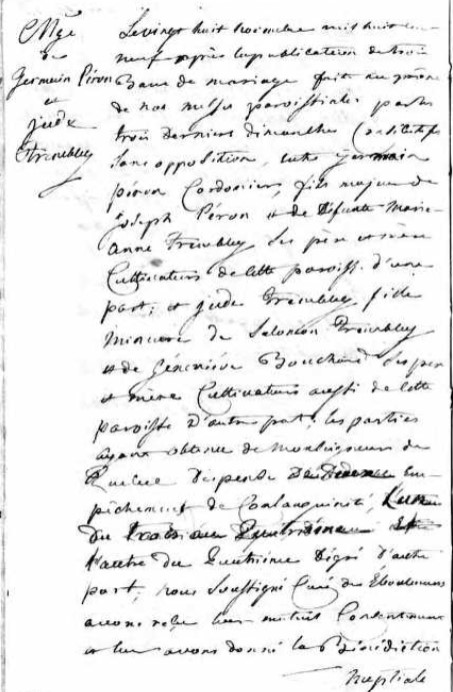 Mge
de
Germain Péron
et
Jude
Trembley
Le vingt huit novembre mil huit cent
neuf après la publication de trois
Bans de mariage faite au prône
de nos messes paroissiales par les
trois derniers dimanches Consécutifs
sans opposition, entre Germain
péron Cordonier, fils majeur de
Joseph Péron et de Défunte Marie
anne Trembley Ses père et mère
Cultivateurs de cette paroisse d'une
part; et Jude Trembley fille
mineure de Salomon Trembley
et de Géneviève Bouchard Ses père
et mère Cultivateurs aussi de cette
paroisse D'autre part; les parties
ayant obtenu de Monseigneur de
Quebec Dispense em-
pêchement de Consanguinité, l'un
du trois au Quatrième et
l'autre du Quatrième Dégré D'autre
part, nous Soussigné Curé des Eboulemens
avons reçu leur mutuel Consentement
et leur avons donné la Bénédiction
Nuptiale